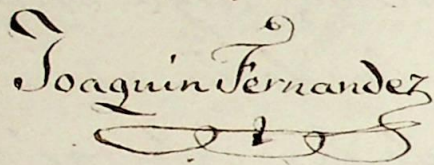 Joaquin Fernandez